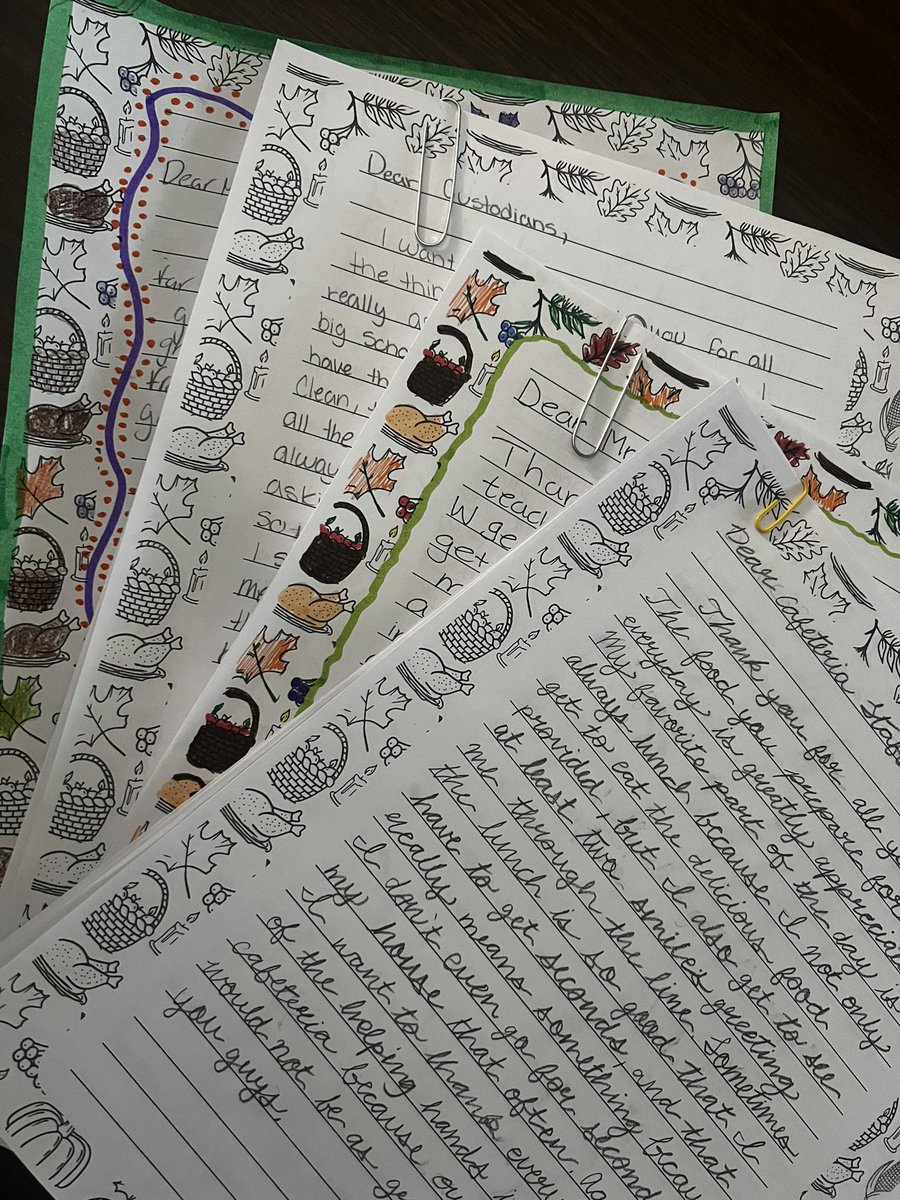 Dear
far
Dear Custodians,
I want
the thin
you for all
really a
big scho
have th
Clean,
all the
alway
aski
so
I s
me
th
Dear Mr
Than
teac
W ge
get
m
a
in
Dear Cafeteria Staf
Thank you for all y
The food you prepare for
everyday is greatly appreciat
My favorite part of the day is
always lunch because I not only
get to eat the delicious food
provided, but I also get to see
at least two smiles greeting
me through the line. Sometimes
the lunch is so good that I
have to get seconds, and that
really means something becau
I don't even go for second
my house that often.
I want to thank every
of the helping hands i
cafeteria because ou
would not be as ge
you guys.